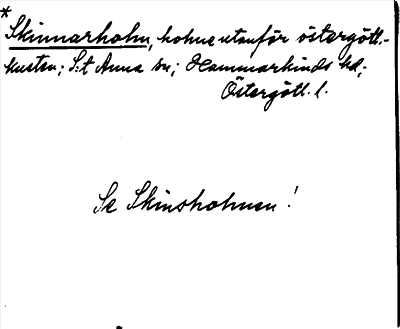 * Skinnarholm, holme utanför östergötl.-
kusten; S:t Anna sn; Hammarkinds hd;
Östergötl. l.
Se Skinsholmen!